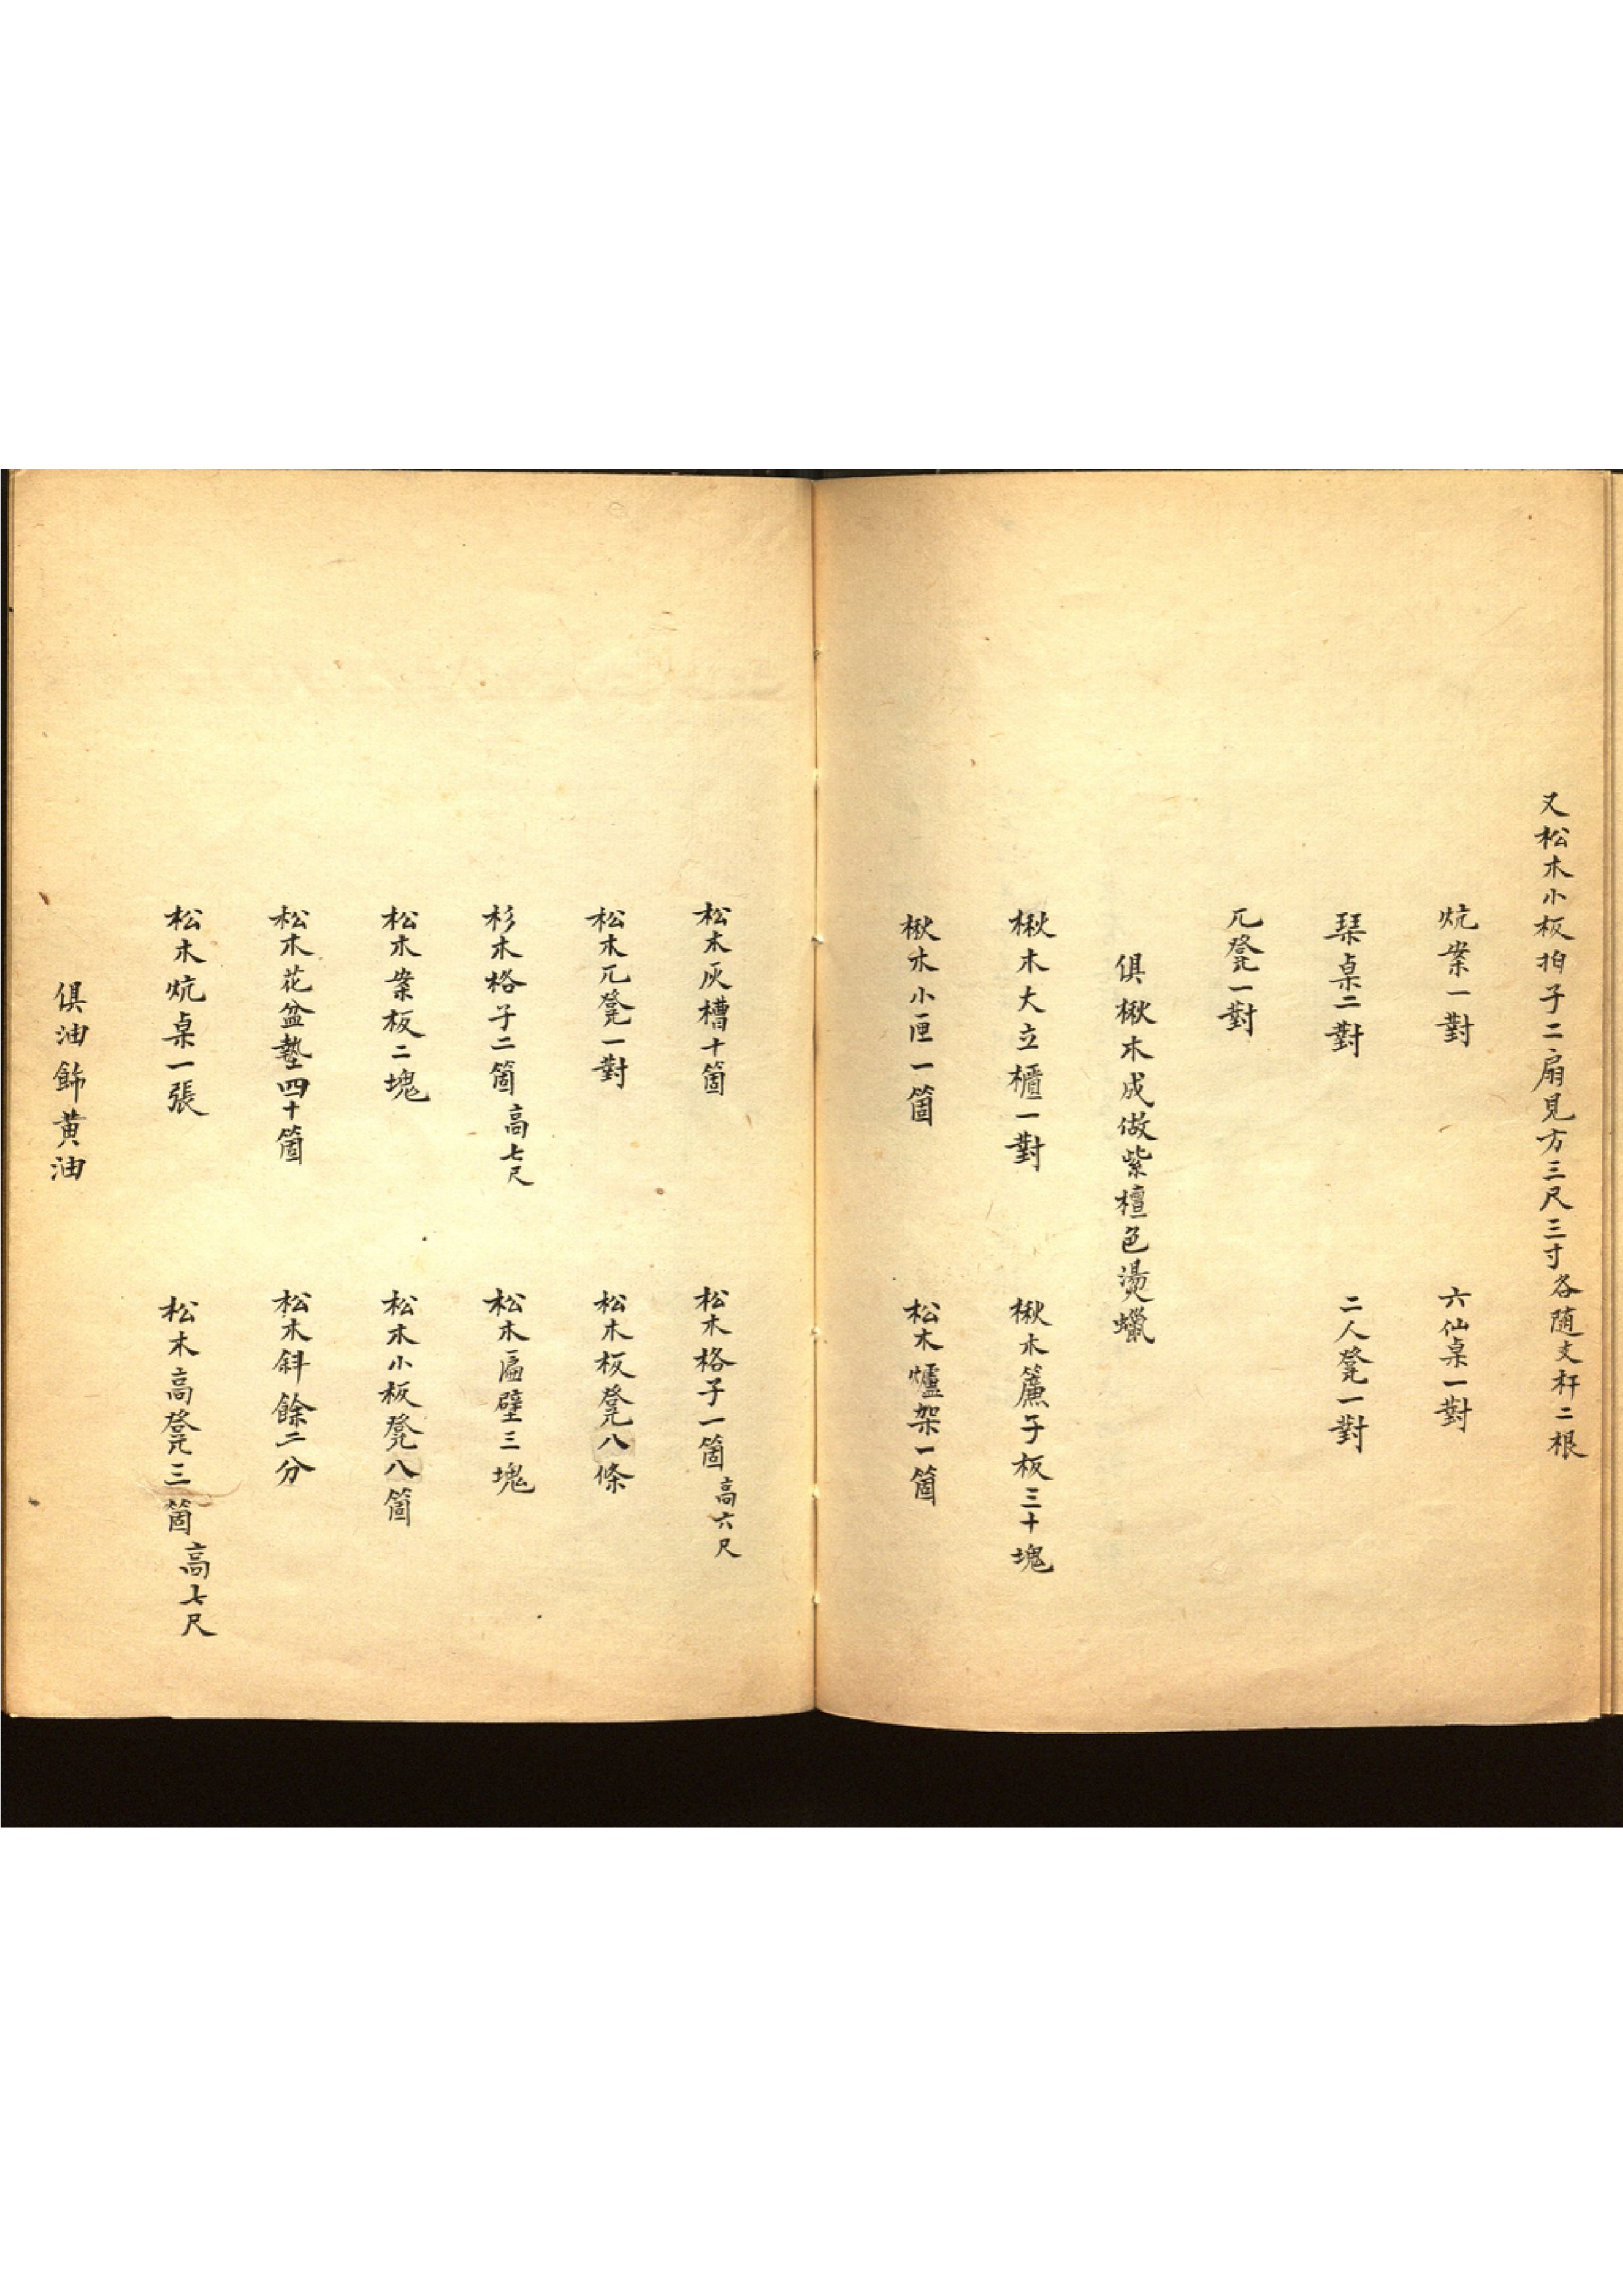 又松木小板拍子二扇見方三尺三寸各随支杆二根
炕案一對　六仙桌一對
琹桌二對　二人凳一對
兀凳一對
俱楸木成做紫檀色燙蠟
楸木大立櫃一對　楸木簾子板三十塊
楸木小匣一箇　松木爐架一箇
松木灰槽十箇　松木格子一箇高六尺
松木兀凳一對　松木板凳八條
杉木格子二箇高七尺　松木匾壁三塊
松木案板二塊　松木小板凳八箇
松木花盆墊四十箇　松木斜餘二分
松木炕桌一張　松木高凳三箇高七尺
俱油飾黃油